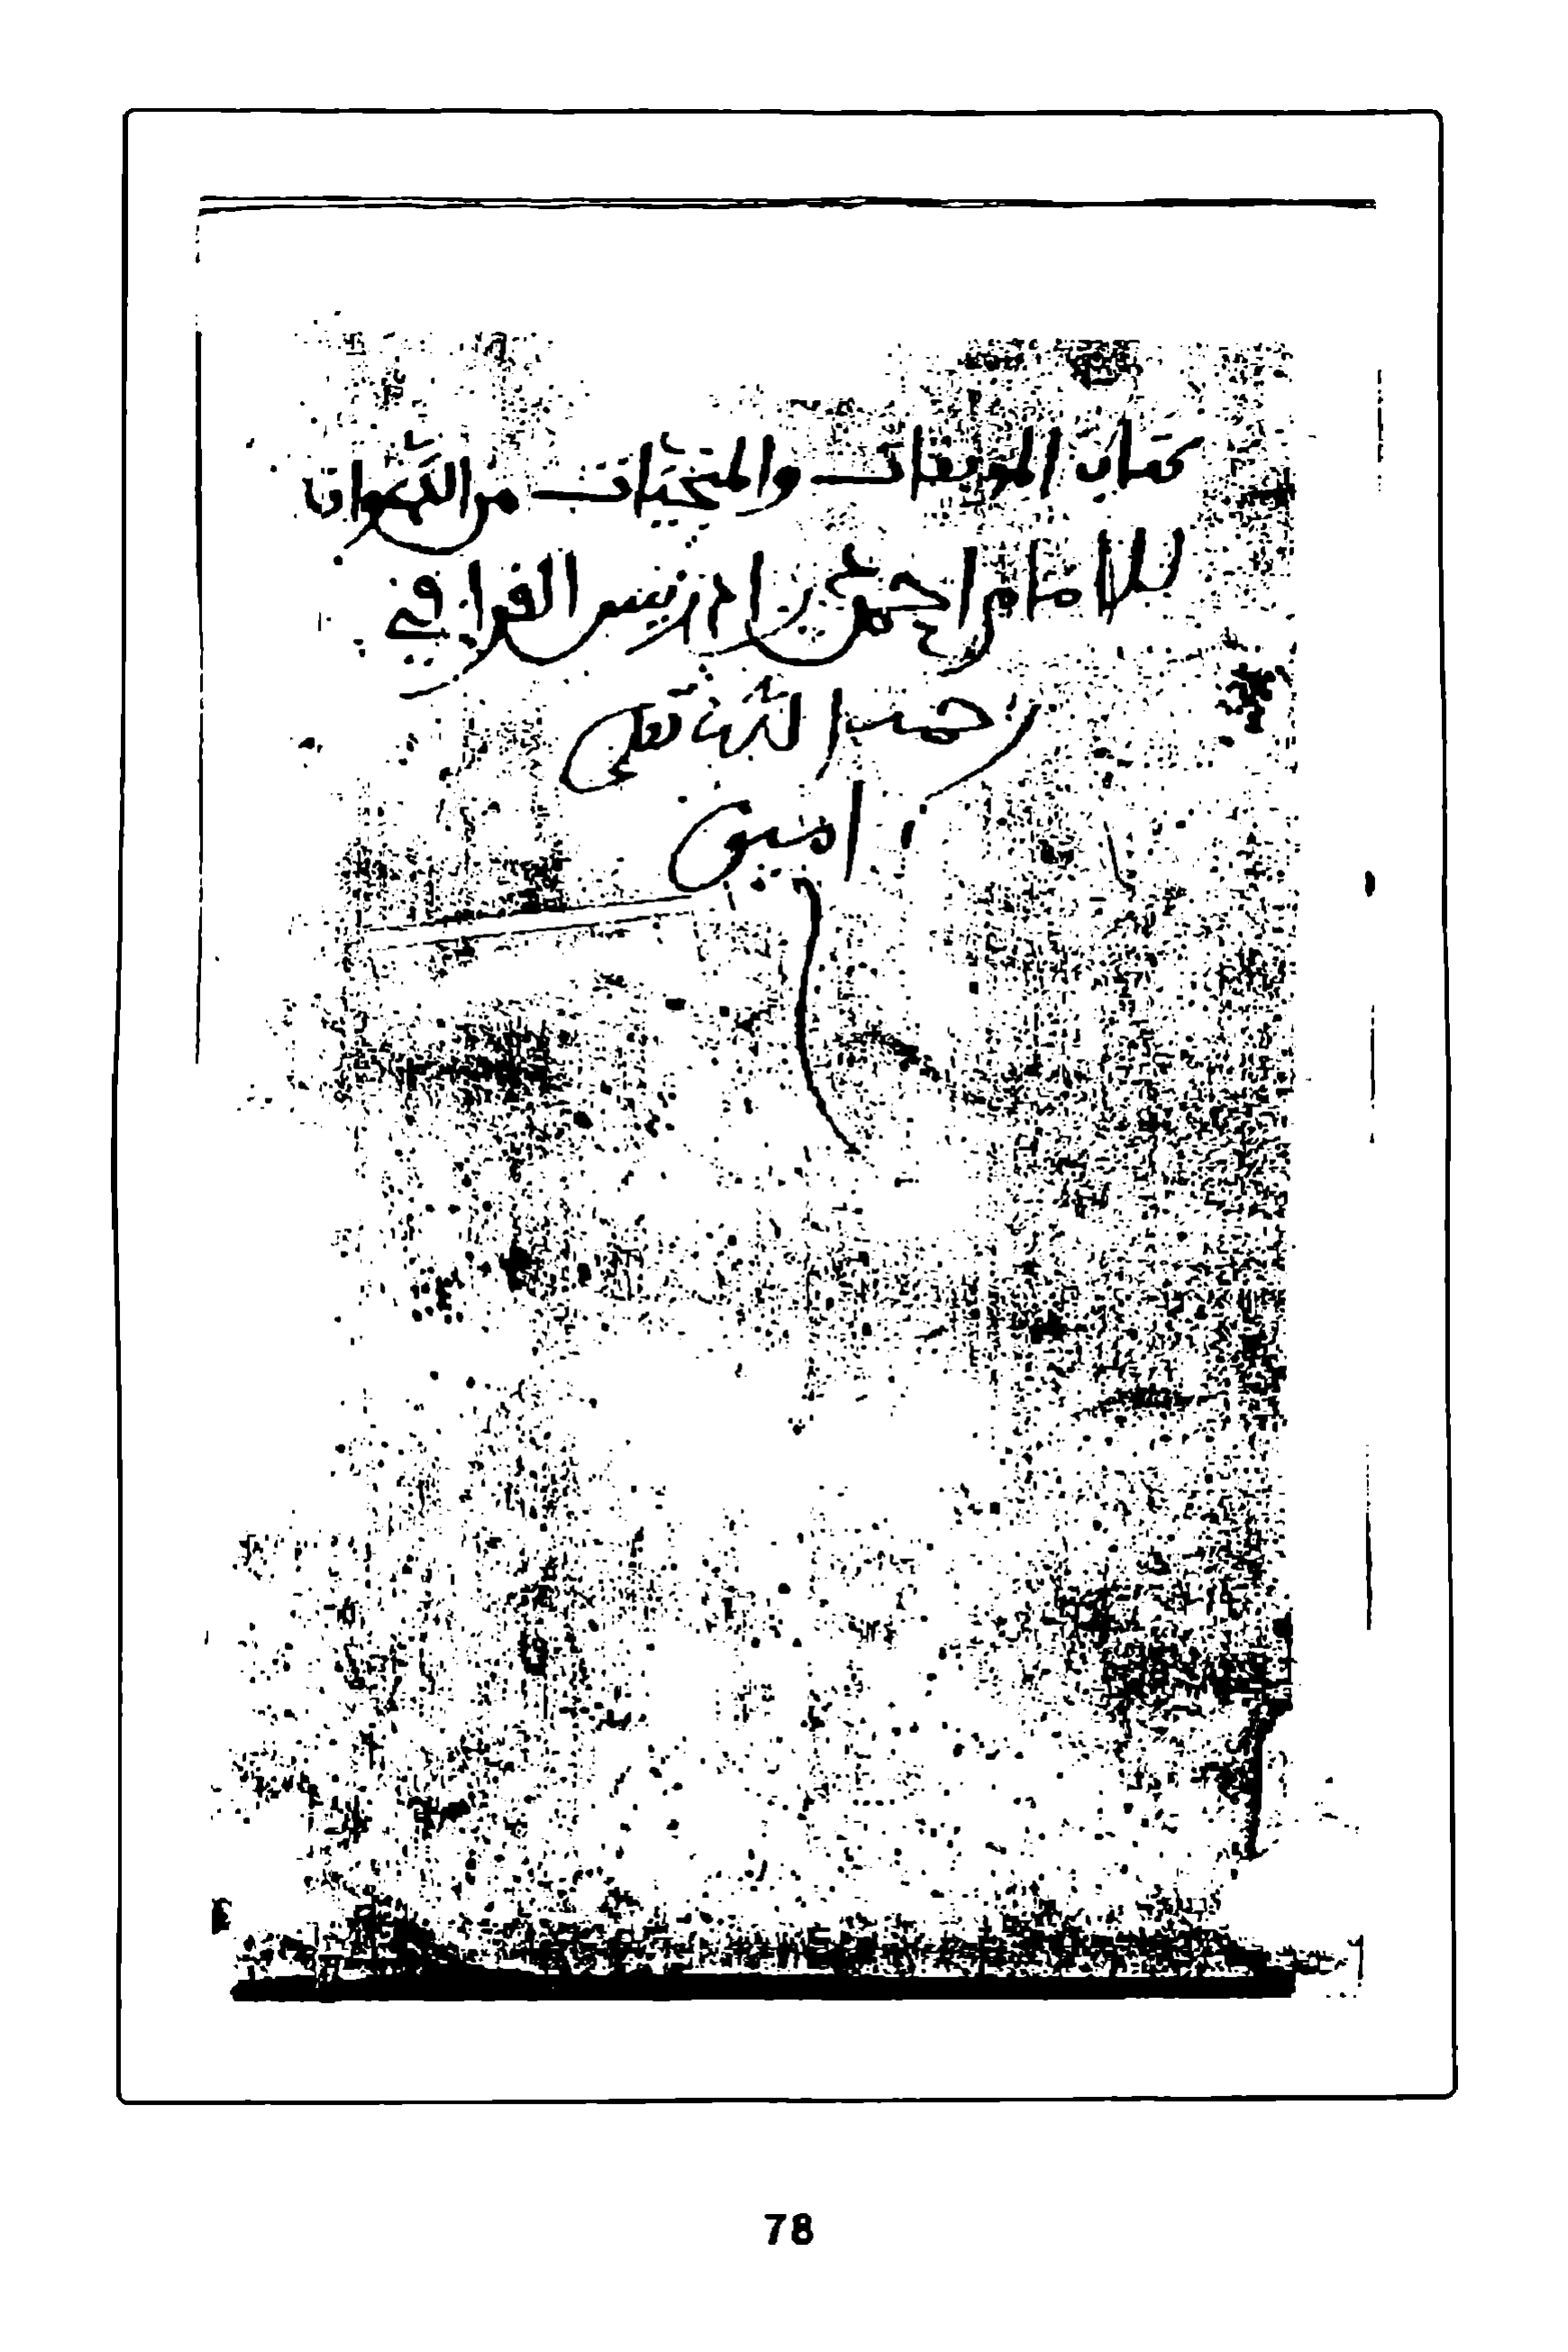 كتاب الموبقات والمنجيات من الدعوات
للامام احمد بن ادريس القرافي
رحمه الله تعلى
امين
78